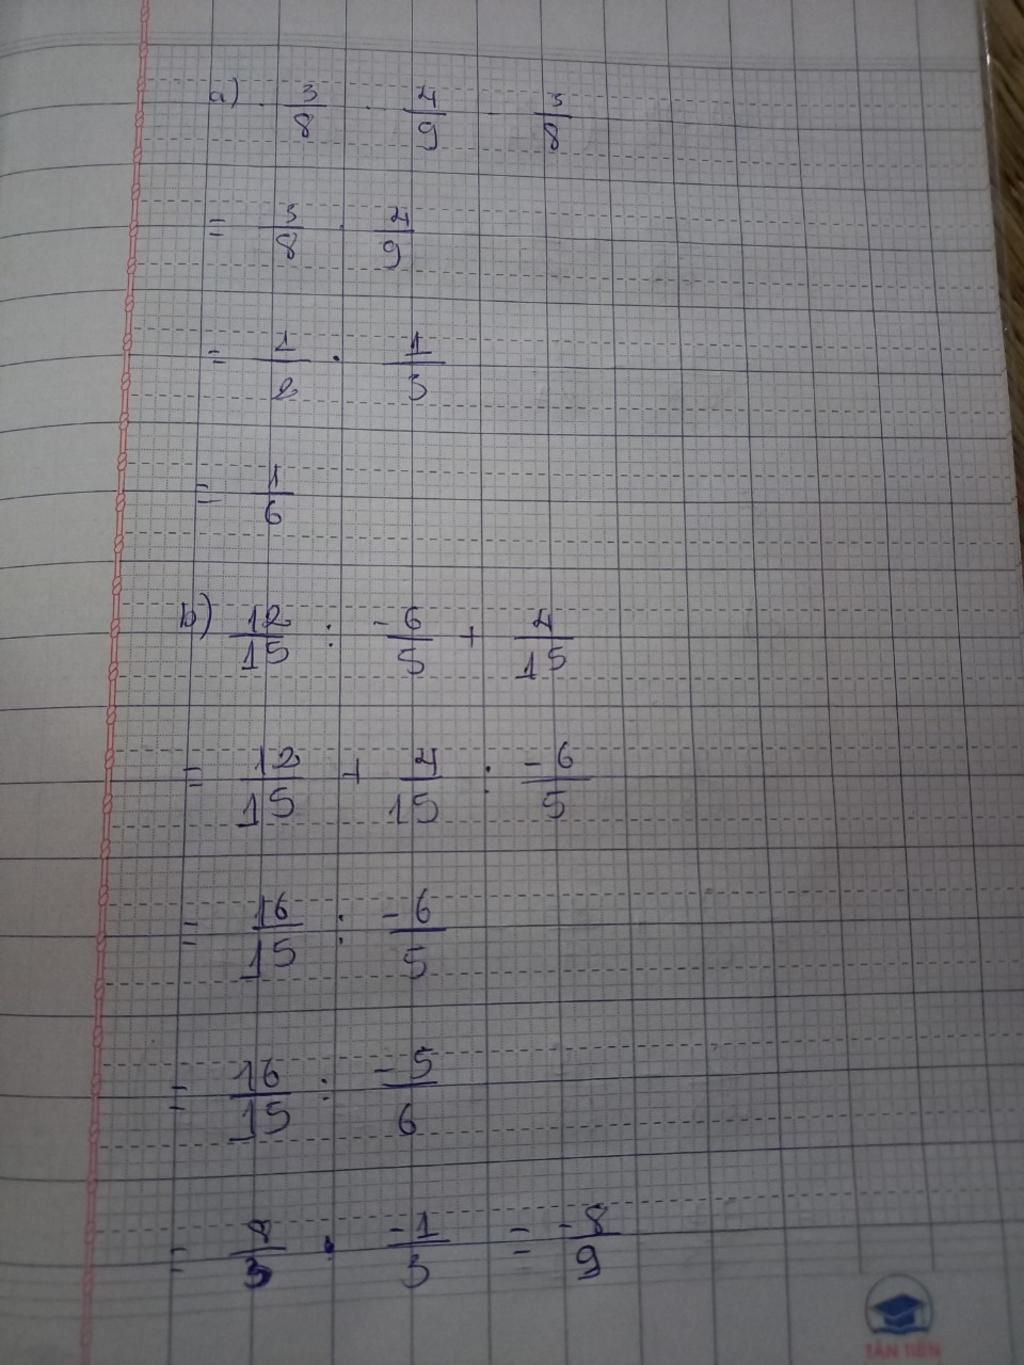 a) . 3/8 . 4/9 - 3/8
= 3/8 . 4/9
= 1/2 . 1/3
= 1/6
b) 12/15 : -6/5 + 4/15
= 12/15 + 4/15 : -6/5
= 16/15 : -6/5
= 16/15 : -5/6
= 8/3 . -1/3 = -8/9
TÂN TIẾN